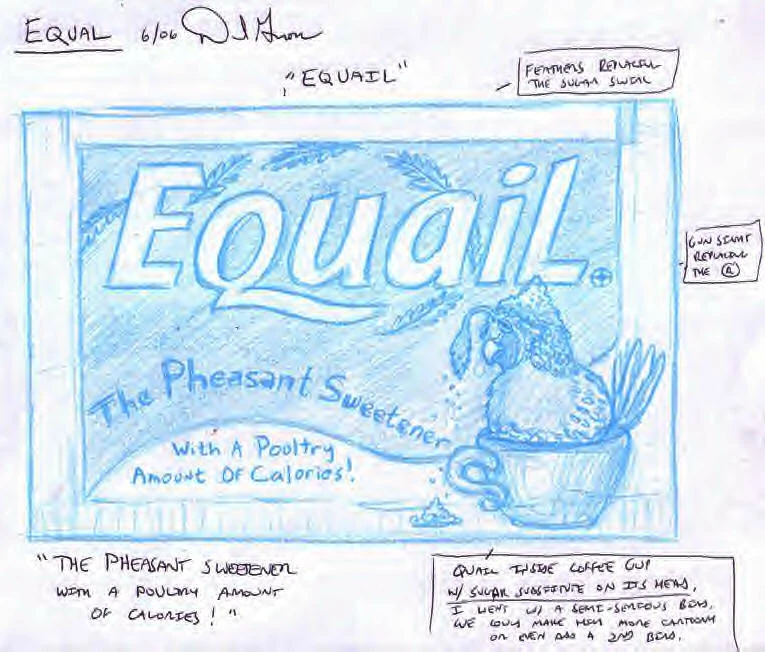 EQUAL 6/06
"EQUAIL"
FEATHERS REPLACING
THE SUGAR SWIRL
EquaiL
GUN SIGHT
REPLACING
THE ®
The Pheasant Sweetener
With A Poultry
Amount Of Calories!
"THE PHEASANT SWEETENER
WITH A POULTRY AMOUNT
OF CALORIES!"
QUAIL INSIDE COFFEE CUP
W/ SUGAR SUBSTITUTE ON ITS HEAD.
I WENT W/ A SEMI-SERIOUS BIRD.
WE COULD MAKE HIM MORE CARTOONY
OR EVEN ADD A 2ND BIRD.